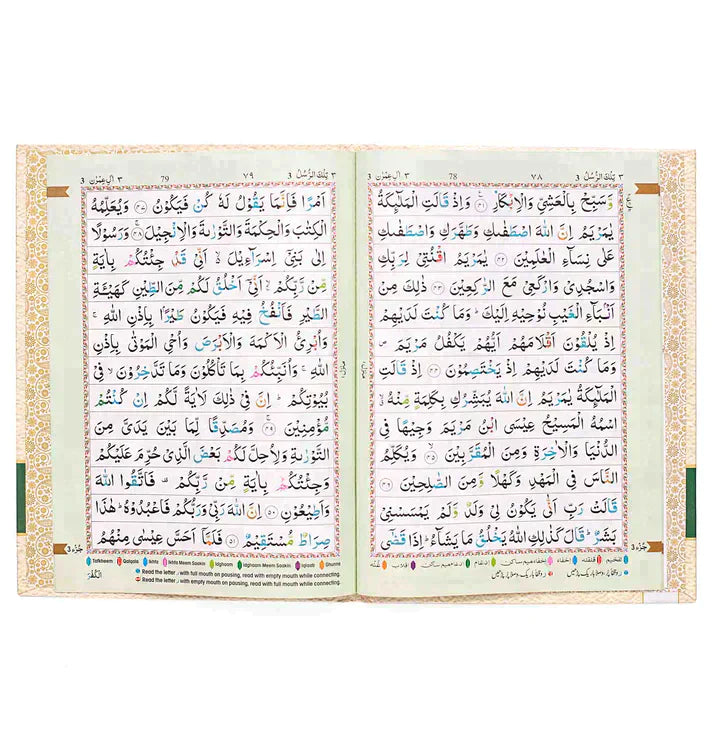 ٣ تِلْكَ الرُّسُلُ 3 ٧٨ 78 ٣ اٰلِ عِمْرٰن 3
وَّسَبِّحْ بِالْعَشِيِّ وَالْاِبْكَارِ ﴿٤١﴾ وَاِذْ قَالَتِ الْمَلٰٓئِكَةُ
يٰمَرْيَمُ اِنَّ اللّٰهَ اصْطَفٰىكِ وَطَهَّرَكِ وَاصْطَفٰىكِ
عَلٰى نِسَآءِ الْعٰلَمِيْنَ ﴿٤٢﴾ يٰمَرْيَمُ اقْنُتِيْ لِرَبِّكِ
وَاسْجُدِيْ وَارْكَعِيْ مَعَ الرّٰكِعِيْنَ ﴿٤٣﴾ ذٰلِكَ مِنْ
اَنْۢبَآءِ الْغَيْبِ نُوْحِيْهِ اِلَيْكَ ؕ وَمَا كُنْتَ لَدَيْهِمْ
اِذْ يُلْقُوْنَ اَقْلَامَهُمْ اَيُّهُمْ يَكْفُلُ مَرْيَمَ ۪
وَمَا كُنْتَ لَدَيْهِمْ اِذْ يَخْتَصِمُوْنَ ﴿٤٤﴾ اِذْ قَالَتِ
الْمَلٰٓئِكَةُ يٰمَرْيَمُ اِنَّ اللّٰهَ يُبَشِّرُكِ بِكَلِمَةٍ مِّنْهُ ۖۗ
اسْمُهُ الْمَسِيْحُ عِيْسَى ابْنُ مَرْيَمَ وَجِيْهًا فِي
الدُّنْيَا وَالْاٰخِرَةِ وَمِنَ الْمُقَرَّبِيْنَ ﴿٤٥﴾ وَيُكَلِّمُ
النَّاسَ فِي الْمَهْدِ وَكَهْلًا وَّمِنَ الصّٰلِحِيْنَ ﴿٤٦﴾
قَالَتْ رَبِّ اَنّٰى يَكُوْنُ لِيْ وَلَدٌ وَّلَمْ يَمْسَسْنِيْ
بَشَرٌ ؕ قَالَ كَذٰلِكِ اللّٰهُ يَخْلُقُ مَا يَشَآءُ ؕ اِذَا قَضٰۤى
جُزْء 3
تفخیم قلقله إخفاء إخفاء میم ساکن إدغام إدغام میم ساکن إقلاب غُنّه
٣ تِلْكَ الرُّسُلُ 3 ٧٩ 79 ٣ اٰلِ عِمْرٰن 3
اَمْرًا فَاِنَّمَا يَقُوْلُ لَهٗ كُنْ فَيَكُوْنُ ﴿٤٧﴾ وَيُعَلِّمُهُ
الْكِتٰبَ وَالْحِكْمَةَ وَالتَّوْرٰىةَ وَالْاِنْجِيْلَ ﴿٤٨﴾ وَرَسُوْلًا
اِلٰى بَنِيْۤ اِسْرَآءِيْلَ ۙ اَنِّيْ قَدْ جِئْتُكُمْ بِاٰيَةٍ
مِّنْ رَّبِّكُمْ ۙ اَنِّيْۤ اَخْلُقُ لَكُمْ مِّنَ الطِّيْنِ كَهَيْـَٔةِ
الطَّيْرِ فَاَنْفُخُ فِيْهِ فَيَكُوْنُ طَيْرًۢا بِاِذْنِ اللّٰهِ ۚ
وَاُبْرِئُ الْاَكْمَهَ وَالْاَبْرَصَ وَاُحْيِ الْمَوْتٰى بِاِذْنِ
اللّٰهِ ۚ وَاُنَبِّئُكُمْ بِمَا تَاْكُلُوْنَ وَمَا تَدَّخِرُوْنَ ۙ فِيْ
بُيُوْتِكُمْ ؕ اِنَّ فِيْ ذٰلِكَ لَاٰيَةً لَّكُمْ اِنْ كُنْتُمْ
مُّؤْمِنِيْنَ ﴿٤٩﴾ وَمُصَدِّقًا لِّمَا بَيْنَ يَدَيَّ مِنَ
التَّوْرٰىةِ وَلِاُحِلَّ لَكُمْ بَعْضَ الَّذِيْ حُرِّمَ عَلَيْكُمْ
وَجِئْتُكُمْ بِاٰيَةٍ مِّنْ رَّبِّكُمْ ۟ فَاتَّقُوا اللّٰهَ
وَاَطِيْعُوْنِ ﴿٥٠﴾ اِنَّ اللّٰهَ رَبِّيْ وَرَبُّكُمْ فَاعْبُدُوْهُ ؕ هٰذَا
صِرَاطٌ مُّسْتَقِيْمٌ ﴿٥١﴾ فَلَمَّاۤ اَحَسَّ عِيْسٰى مِنْهُمُ
جُزْء 3
Tafkheem Qalqala Ikhfa Ikhfa Meem Saakin Idghaam Idghaam Meem Saakin Iqlaab Ghunna
Read the letter ر with full mouth on pausing, read with empty mouth while connecting.
Read the letter ر with empty mouth on pausing, read with full mouth while connecting
الْكُفْرَ